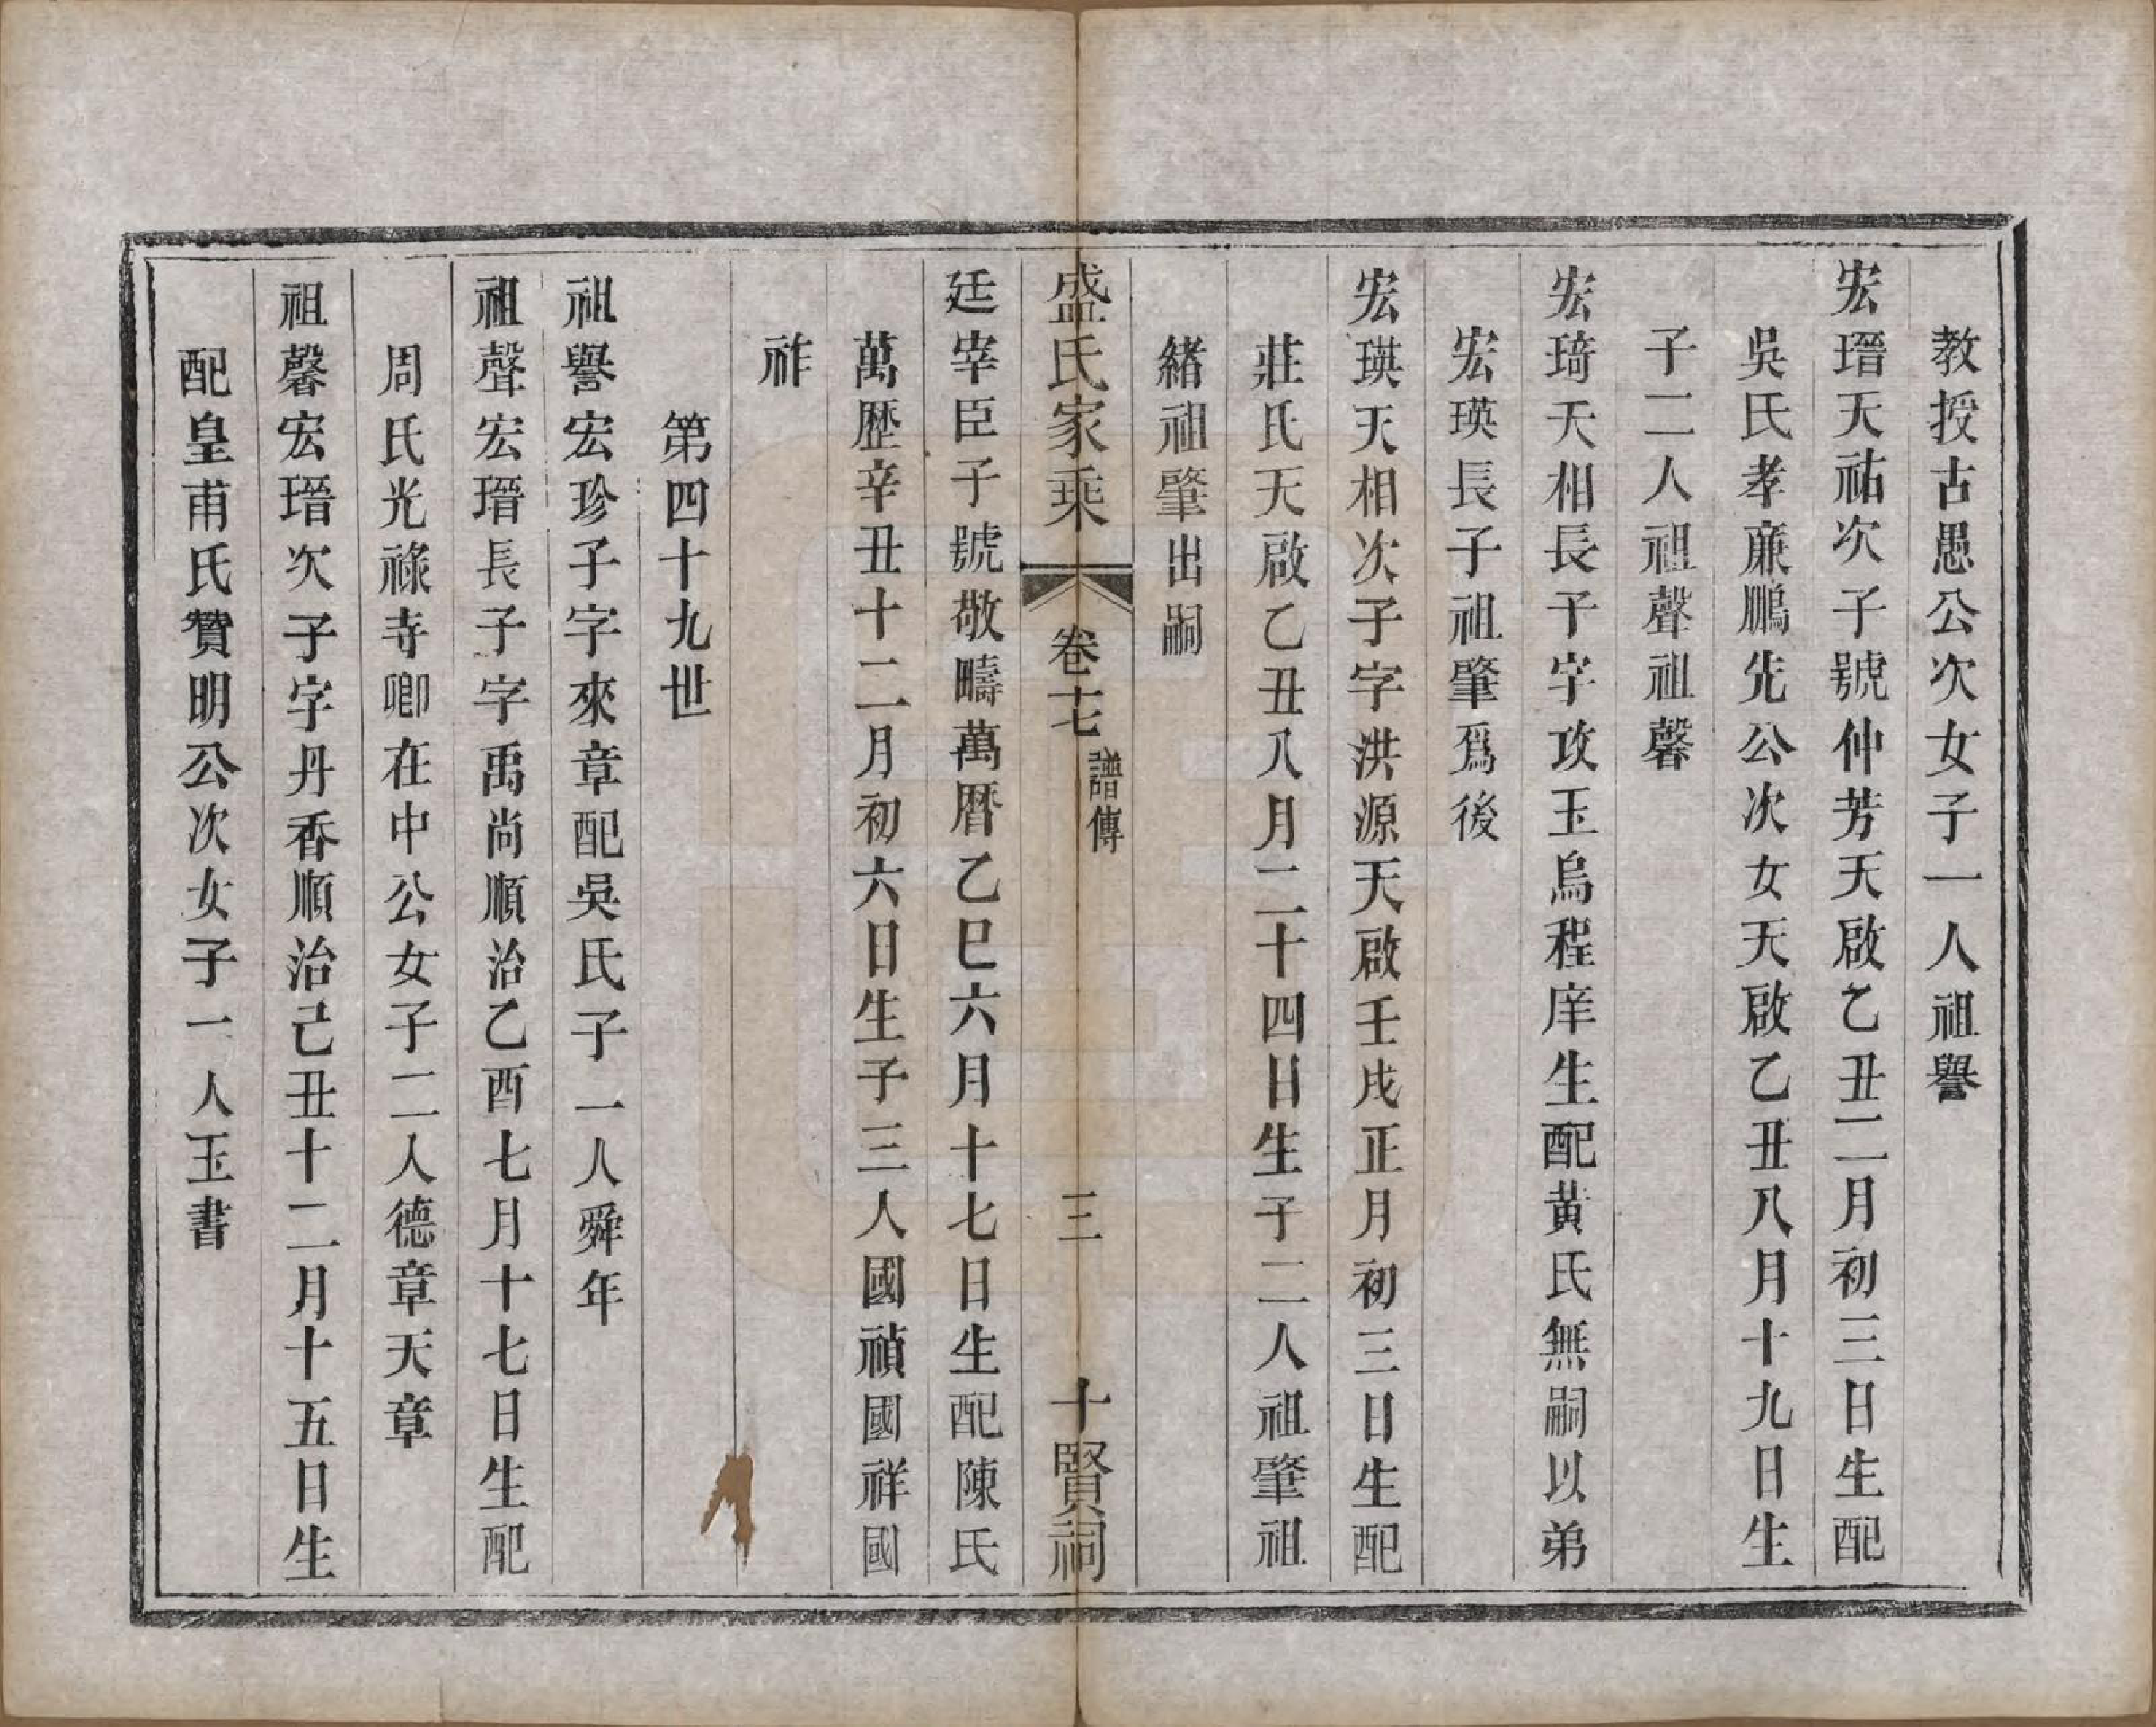 教授古愚公次女子一人祖譽
宏瑨天祐次子號仲芳天啟乙丑二月初三日生配
吳氏孝廉鵬先公次女天啟乙丑八月十九日生
子二人祖聲祖馨
宏琦天相長子字攻玉烏程庠生配黃氏無嗣以弟
宏瑛長子祖肇爲後
宏瑛天相次子字洪源天啟壬戌正月初三日生配
莊氏天啟乙丑八月二十四日生子二人祖肇祖
緒祖肇出嗣
盛氏家乘 卷十七 譜傳 三 十賢祠
廷宰臣子號敬疇萬曆乙巳六月十七日生配陳氏
萬歷辛丑十二月初六日生子三人國禎國祥國
祚
第四十九世
祖譽宏珍子字來章配吳氏子一人舜年
祖聲宏瑨長子字禹尚順治乙酉七月十七日生配
周氏光祿寺卿在中公女子二人德章天章
祖馨宏瑨次子字丹香順治己丑十二月十五日生
配皇甫氏贊明公次女子一人玉書